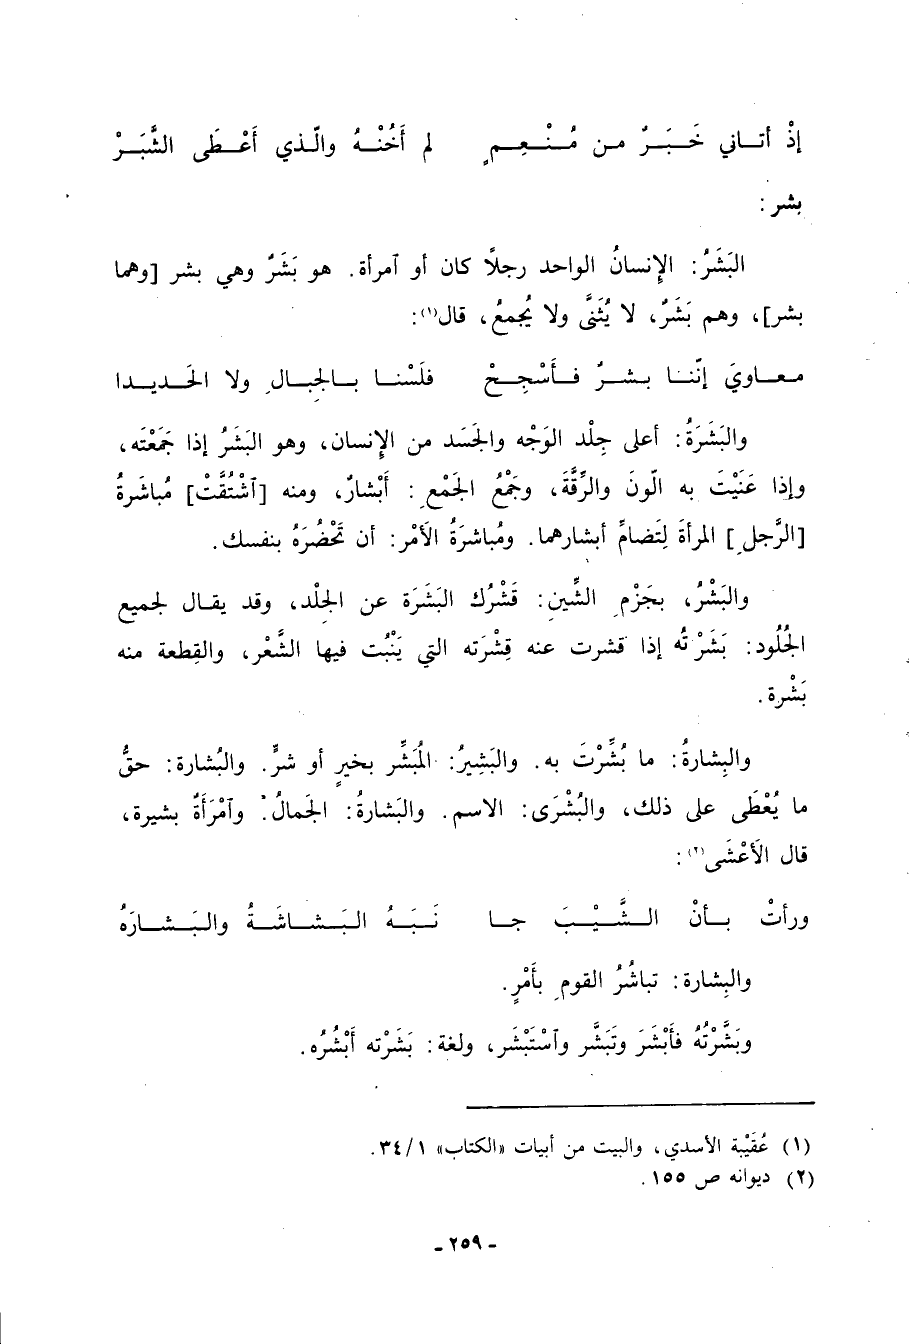 إذْ أتاني خَبَرٌ من مُنْعِمٍ لم أَخُنْهُ والّذي أَعْطَى الشَّبَرْ
بشر :
البَشَرُ: الإِنسانُ الواحد رجلاً كان أو آمرأة. هو بَشَرٌ وهي بشر [وهما
بشر]، وهم بَشَرٌ، لا يُثَنَّى ولا يُجمعُ، قال(١):
معاويَ إنّنا بشرٌ فأَسْجِحْ فلَسْنا بالجِبالِ ولا الحَديدا
والبَشَرَةُ: أعلى جِلْد الوَجْه والجَسَد من الإِنسان، وهو البَشَرُ إذا جَمَعْتَه،
وإذا عَنَيْتَ به الّلونَ والرِّقَّةَ، وجَمْعُ الجَمْعِ: أَبْشارٌ، ومنه [آشْتُقَّتْ] مُباشَرةُ
[الرَّجلِ] المرأةَ لِتَضامِّ أبشارهما. ومُباشَرَةُ الأمْر: أن تَحْضُرَهُ بنفسك.
والبَشْرُ، بجَزْمِ الشِّينِ: قَشْرُك البَشَرَة عن الجِلْد، وقد يقال لجميع
الجُلُود: بَشَرْتُه إذا قشرت عنه قِشْرَته التي يَنْبُت فيها الشَّعْر، والقِطعة منه
بَشْرة.
والبِشارةُ: ما بُشِّرْتَ به. والبَشِيرُ: المُبَشِّر بخيرٍ أو شرٍّ. والبُشارة: حقُّ
ما يُعْطَى على ذلك، والبُشْرَى: الاسم. والبَشارةُ: الجَمالُ. وآمْرَأَةٌ بشيرة،
قال الأَعْشَى(٢):
ورأتْ بأنْ الشَّيْبَ جا نَبَهُ البَشاشَةُ والبَشارَهُ
والبِشارة: تباشُرُ القومِ بأَمْرٍ.
وبَشَّرْتُهُ فأَبْشَرَ وتَبَشَّر وآسْتَبْشَر، ولغة: بَشَرْته أَبْشُرُه.
(١) عُقَيْبة الأسدي، والبيت من أبيات «الكتاب» ٣٤/١.
(٢) ديوانه ص ١٥٥.
- ٢٥٩ -